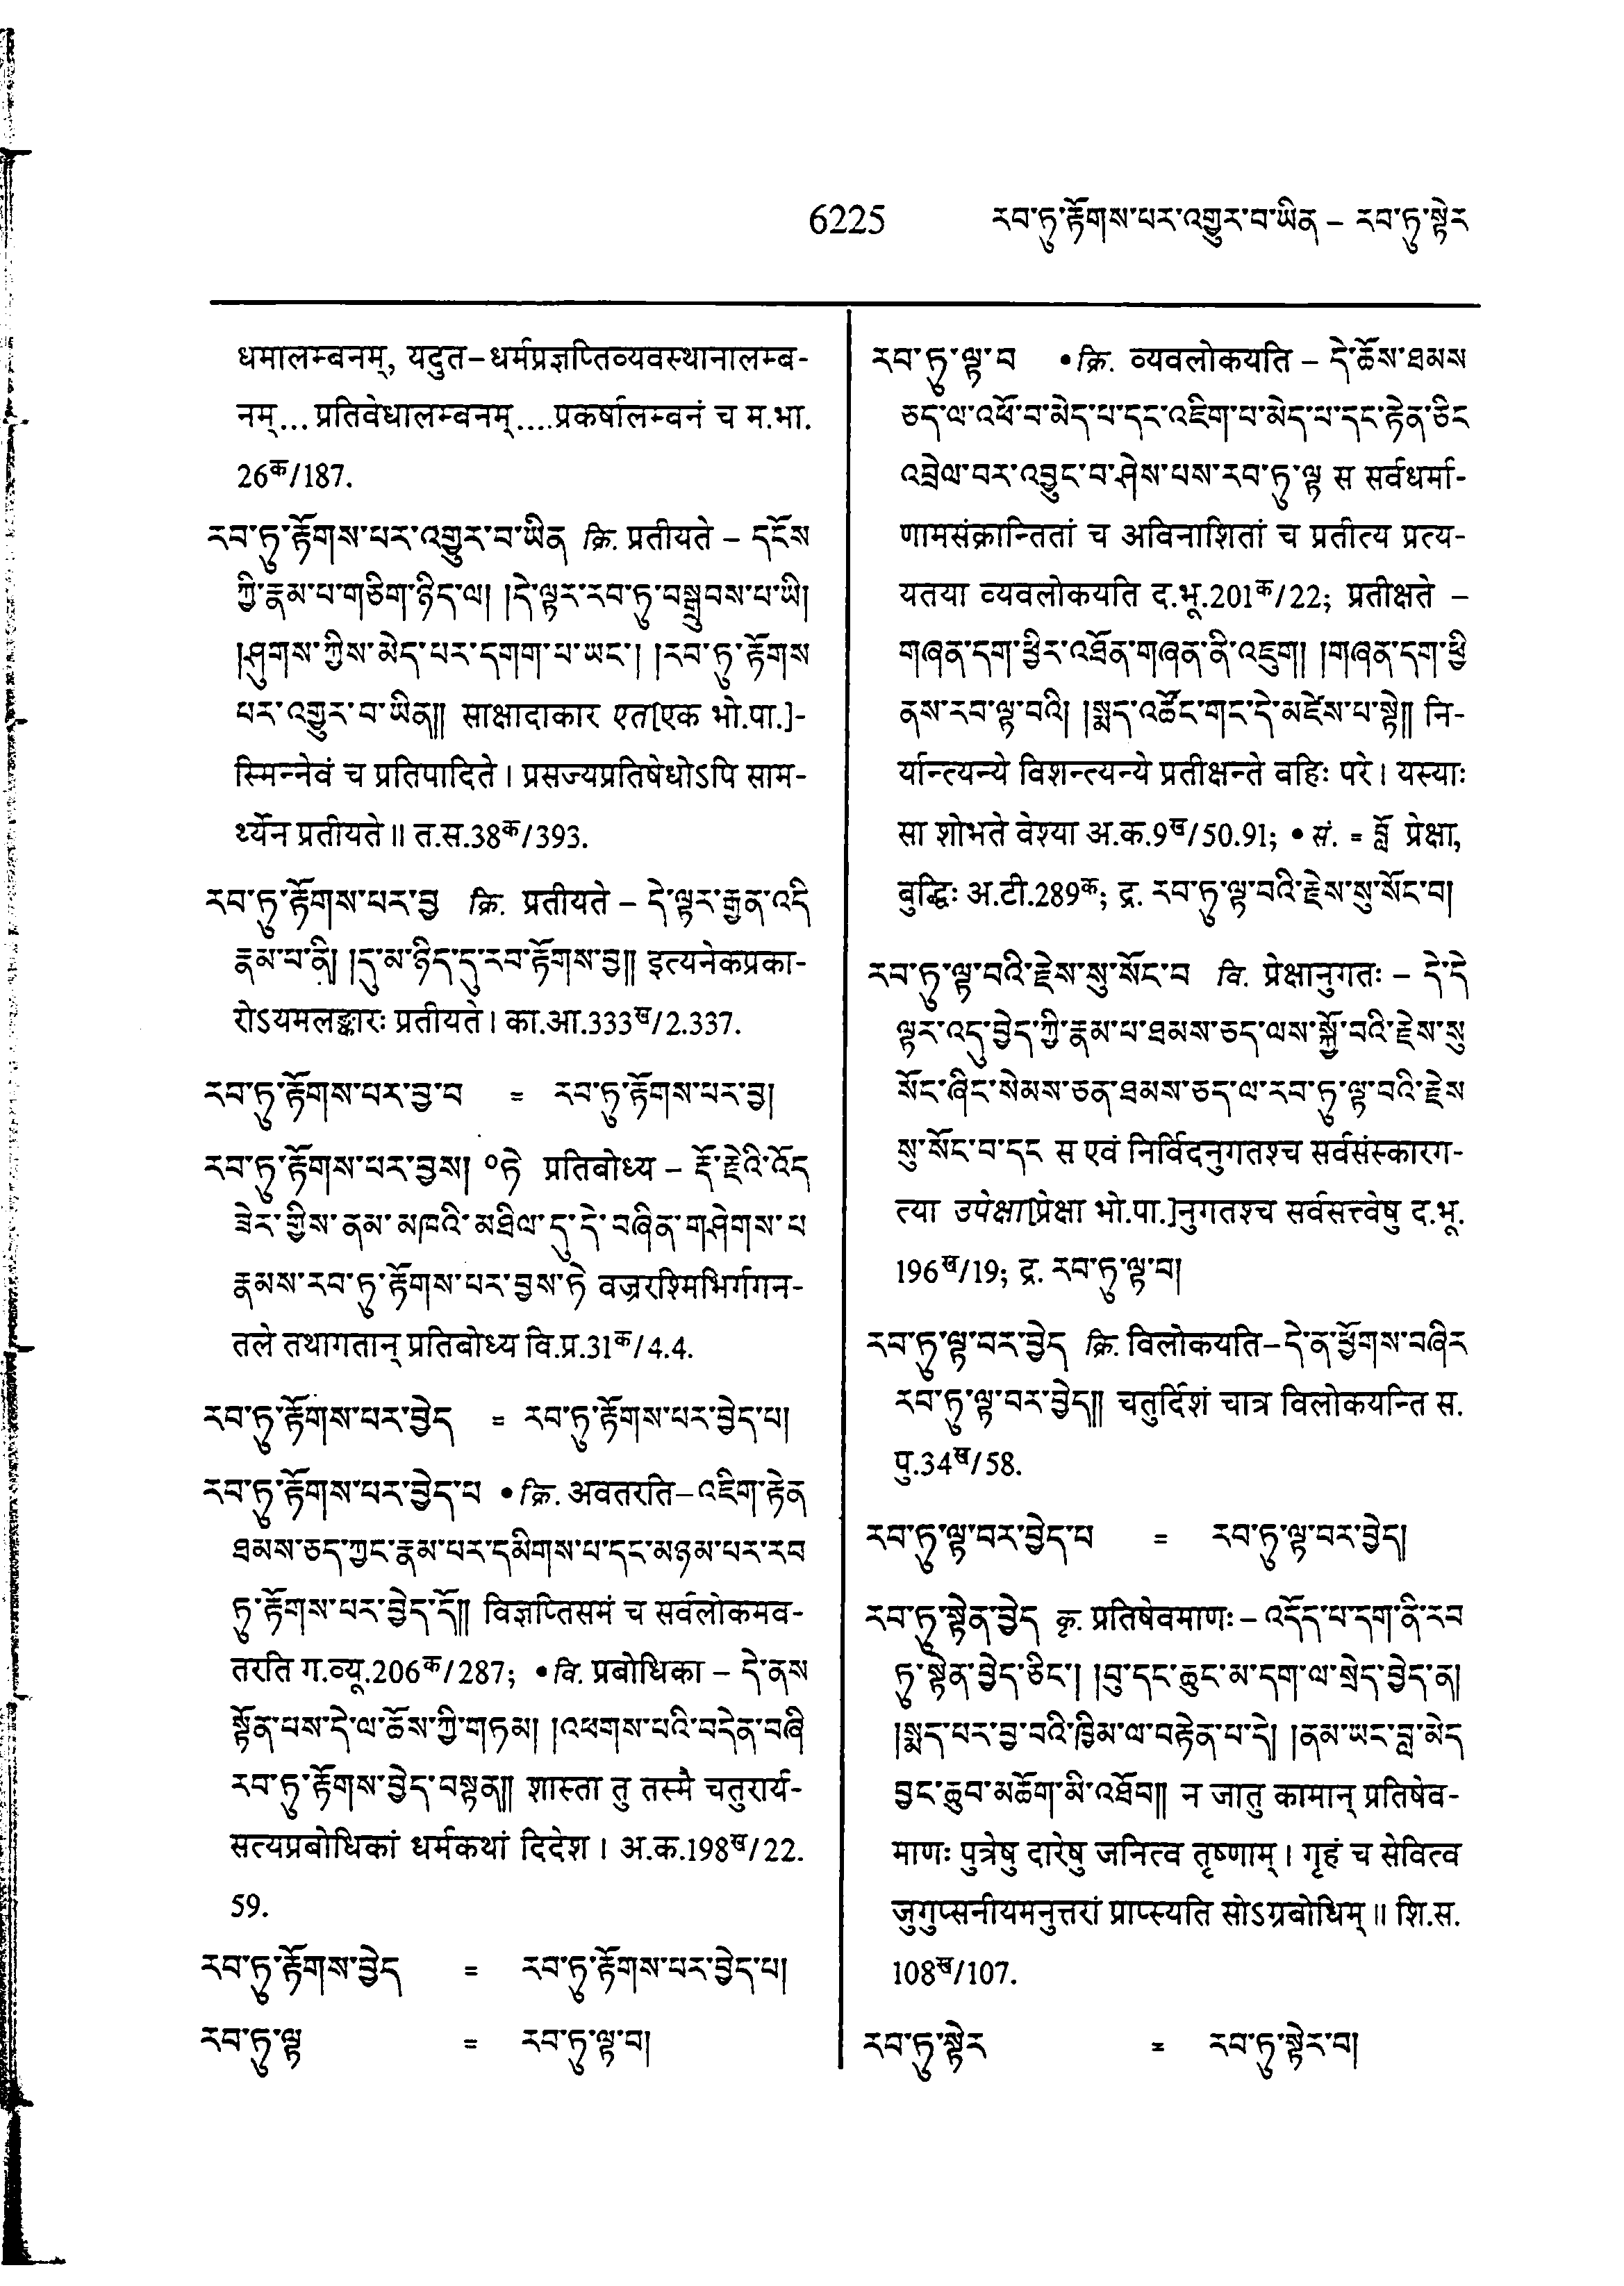 6225 རབ་ཏུ་རྟོགས་པར་འགྱུར་བ་ཡིན – རབ་ཏུ་སྟེར
धमालम्बनम्, यदुत–धर्मप्रज्ञप्तिव्यवस्थानालम्ब-
नम्... प्रतिवेधालम्वनम्....प्रकर्षालम्वनं च म.भा.
26क/187.
རབ་ཏུ་རྟོགས་པར་འགྱུར་བ་ཡིན क्रि. प्रतीयते – དངོས
ཀྱི་རྣམ་པ་གཅིག་ཉིད་ལ། །དེ་ལྟར་རབ་ཏུ་བསྒྲུབས་པ་ཡི།
།ཤུགས་ཀྱིས་མེད་པར་དགག་པ་ཡང་། །རབ་ཏུ་རྟོགས
པར་འགྱུར་བ་ཡིན།། साक्षादाकार एत[एक भो.पा.]-
स्मिन्नेवं च प्रतिपादिते। प्रसज्यप्रतिषेधोऽपि साम-
र्थ्येन प्रतीयते॥ त.स.38क/393.
རབ་ཏུ་རྟོགས་པར་བྱ क्रि. प्रतीयते – དེ་ལྟར་རྒྱན་འདི
རྣམ་པ་ནི། །དུ་མ་ཉིད་དུ་རབ་རྟོགས་བྱ།། इत्यनेकप्रका-
रोऽयमलङ्कारः प्रतीयते। का.आ.333ख/2.337.
རབ་ཏུ་རྟོགས་པར་བྱ་བ = རབ་ཏུ་རྟོགས་པར་བྱ།
རབ་ཏུ་རྟོགས་པར་བྱས། ०ཏེ प्रतिबोध्य – རྡོ་རྗེའི་འོད
ཟེར་གྱིས་ནམ་མཁའི་མཐིལ་དུ་དེ་བཞིན་གཤེགས་པ
རྣམས་རབ་ཏུ་རྟོགས་པར་བྱས་ཏེ वज्ररश्मिभिर्गगन-
तले तथागतान् प्रतिबोध्य वि.प्र.31क/4.4.
རབ་ཏུ་རྟོགས་པར་བྱེད = རབ་ཏུ་རྟོགས་པར་བྱེད་པ།
རབ་ཏུ་རྟོགས་པར་བྱེད་པ • क्रि. अवतरति–འཇིག་རྟེན
ཐམས་ཅད་ཀྱང་རྣམ་པར་དམིགས་པ་དང་མཉམ་པར་རབ
ཏུ་རྟོགས་པར་བྱེད་དོ།། विज्ञप्तिसमं च सर्वलोकमव-
तरति ग.व्यू.206क/287; • वि. प्रबोधिका – དེ་ནས
སྟོན་པས་དེ་ལ་ཆོས་ཀྱི་གཏམ། །འཕགས་པའི་བདེན་བཞི
རབ་ཏུ་རྟོགས་བྱེད་བསྟན།། शास्ता तु तस्मै चतुरार्य-
सत्यप्रबोधिकां धर्मकथां दिदेश। अ.क.198ख/22.
59.
རབ་ཏུ་རྟོགས་བྱེད = རབ་ཏུ་རྟོགས་པར་བྱེད་པ།
རབ་ཏུ་ལྟ = རབ་ཏུ་ལྟ་བ།
རབ་ཏུ་ལྟ་བ • क्रि. व्यवलोकयति – དེ་ཆོས་ཐམས
ཅད་ལ་འཕོ་བ་མེད་པ་དང་འཇིག་པ་མེད་པ་དང་རྟེན་ཅིང
འབྲེལ་བར་འབྱུང་བ་ཤེས་པས་རབ་ཏུ་ལྟ स सर्वधर्मा-
णामसंक्रान्तितां च अविनाशितां च प्रतीत्य प्रत्य-
यतया व्यवलोकयति द.भू.201क/22; प्रतीक्षते –
གཞན་དག་ཕྱིར་འཐོན་གཞན་ནི་འཇུག། །གཞན་དག་ཕྱི
ནས་རབ་ལྟ་བའི། །སྨད་འཚོང་གང་དེ་མཛེས་པ་སྟེ།། नि-
र्यान्त्यन्ये विशन्त्यन्ये प्रतीक्षन्ते वहिः परे। यस्याः
सा शोभते वेश्या अ.क.9ख/50.91; • सं. = བློ प्रेक्षा,
बुद्धिः अ.टी.289क; द्र. རབ་ཏུ་ལྟ་བའི་རྗེས་སུ་སོང་བ།
རབ་ཏུ་ལྟ་བའི་རྗེས་སུ་སོང་བ वि. प्रेक्षानुगतः – དེ་དེ
ལྟར་འདུ་བྱེད་ཀྱི་རྣམ་པ་ཐམས་ཅད་ལས་སྐྱོ་བའི་རྗེས་སུ
སོང་ཞིང་སེམས་ཅན་ཐམས་ཅད་ལ་རབ་ཏུ་ལྟ་བའི་རྗེས
སུ་སོང་བ་དང स एवं निर्विदनुगतश्च सर्वसंस्कारग-
त्या उपेक्षा[प्रेक्षा भो.पा.]नुगतश्च सर्वसत्त्वेषु द.भू.
196ख/19; द्र. རབ་ཏུ་ལྟ་བ།
རབ་ཏུ་ལྟ་བར་བྱེད क्रि. विलोकयति–དེ་ན་ཕྱོགས་བཞིར
རབ་ཏུ་ལྟ་བར་བྱེད།། चतुर्दिशं चात्र विलोकयन्ति स.
पु.34ख/58.
རབ་ཏུ་ལྟ་བར་བྱེད་པ = རབ་ཏུ་ལྟ་བར་བྱེད།
རབ་ཏུ་སྟེན་བྱེད कृ. प्रतिषेवमाणः – འདོད་པ་དག་ནི་རབ
ཏུ་སྟེན་བྱེད་ཅིང་། །བུ་དང་ཆུང་མ་དག་ལ་སྲེད་བྱེད་ན།
།སྨད་པར་བྱ་བའི་ཁྱིམ་ལ་བརྟེན་པ་དེ། །ནམ་ཡང་བླ་མེད
བྱང་ཆུབ་མཆོག་མི་འཐོབ།། न जातु कामान् प्रतिषेव-
माणः पुत्रेषु दारेषु जनित्व तृष्णाम्। गृहं च सेवित्व
जुगुप्सनीयमनुत्तरां प्राप्स्यति सोऽग्रबोधिम्॥ शि.स.
108ख/107.
རབ་ཏུ་སྟེར = རབ་ཏུ་སྟེར་བ།